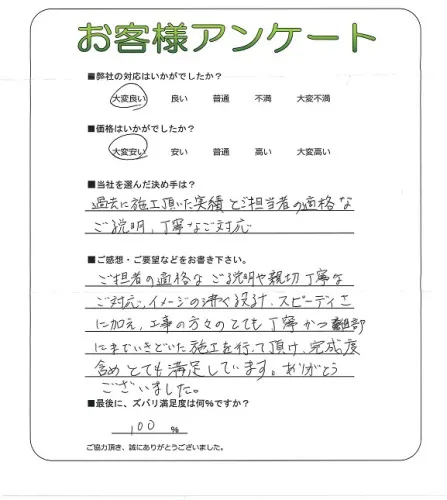 お客様アンケート
■弊社の対応はいかがでしたか?
大変良い 良い 普通 不満 大変不満
■価格はいかがでしたか?
大変安い 安い 普通 高い 大変高い
■当社を選んだ決め手は?
過去に施工頂いた実績とご担当者の適格な
ご説明、丁寧なご対応
■ご感想・ご要望などをお書き下さい。
ご担者の適格なご説明や親切丁寧な
ご対応、イメージの沸く設計、スピーディさ
に加え、工事の方々のとても丁寧かつ細部
にまでいきとどいた施工を行って頂け、完成度
含めとても満足しています。ありがとう
ございました。
■最後に、ズバリ満足度は何%ですか?
100 %
ご協力頂き、誠にありがとうございました。